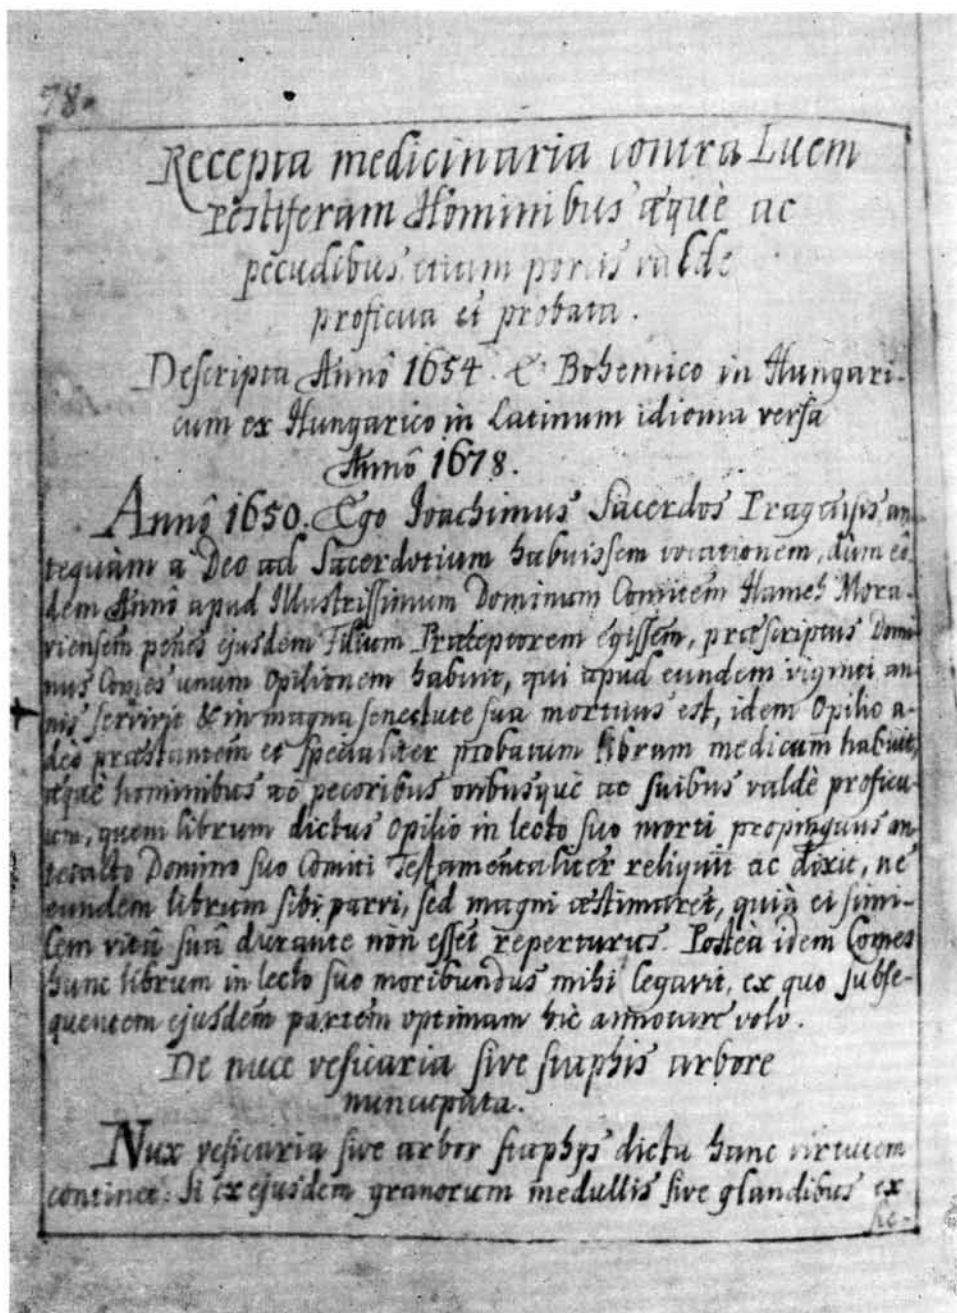 78.
Recepta medicinaria contra Luem
Pestiferam Hominibus æquè ac
pecudibus etiam porcis valde
proficua et probata.
Descripta Annô 1654. E Bohemico in Hungari-
cum ex Hungarico in Latinum idioma versa
Annô 1678.
Annô 1650. Ego Joachimus Sacerdos Pragensis an-
tequàm a Deo ad Sacerdotium habuissem vocationem, dum eô-
dem Annô apud Illustrissimum Dominum Comitem Hames Mora-
viensem penes ejusdem Filium Præceptorem egissem, præscriptus Domi-
nus Comes unum Opilionem habuit, qui apud eundem viginti an-
nis servivit & in magna senectute sua mortuus est, idem Opilio a-
deò præstantem et specialiter probatum librum medicum habuit,
æquè hominibus ac pecoribus ovibusquè ac suibus valdè proficu-
um, quem librum dictus Opilio in lecto suo morti propinquus an-
Domino suo Comiti Testamentaliter reliquit ac dixit, ne
eundem librum sibi parvi, sed magni æstimaret, quià ei simi-
lem vitâ suâ durante non esset reperturus. Posteà idem Comes
hunc librum in lecto suo moribundus mihi legavit, ex quo subse-
quentem ejusdem partem optimam hic annotare volo.
De nuce vesicaria sive staphis arbore
nuncupata.
Nux vesicaria sive arbor staphys dicta hanc virtutem
continet. Si ex ejusdem granorum medullis sive glandibus ex
sic-